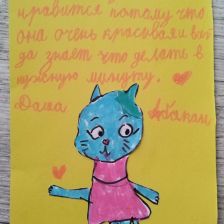 нравится потому что
она очень красивая всег
да знает что делать в
нужную минуту.
Даша Абакан